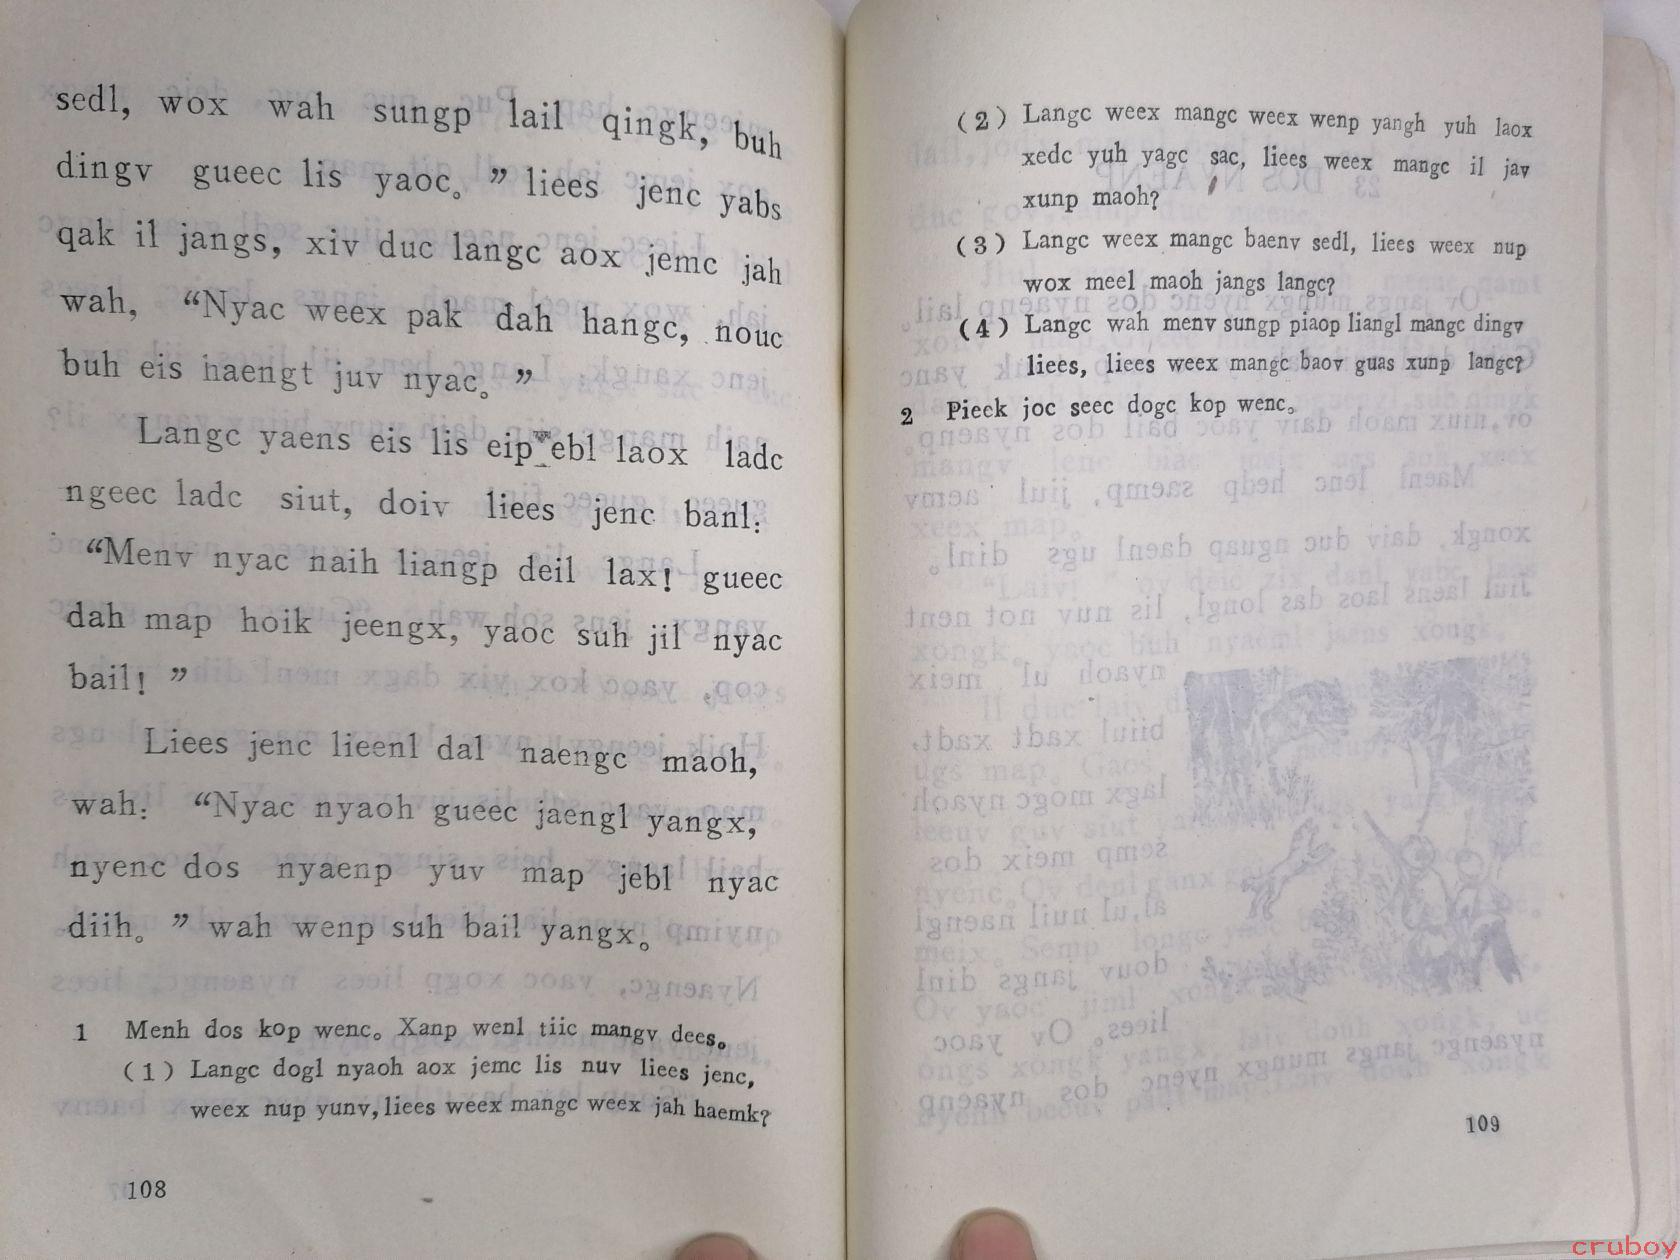 sedl, wox wah sungp lail qingk, buh
dingv gueec lis yaoc。” liees jenc yabs
qak il jangs, xiv duc langc aox jemc jah
wah, “Nyac weex pak dah hangc, nouc
buh eis haengt juv nyac。”
Langc yaens eis lis eip ebl laox ladc
ngeec ladc siut, doiv liees jenc banl:
“Menv nyac naih liangp deil lax! gueec
dah map hoik jeengx, yaoc suh jil nyac
bail! ”
Liees jenc lieenl dal naengc maoh,
wah: “Nyac nyaoh gueec jaengl yangx,
nyenc dos nyaenp yuv map jebl nyac
diih。” wah wenp suh bail yangx。
1 Menh dos kop wenc。 Xanp wenl tiic mangv dees。
(1) Langc dogl nyaoh aox jemc lis nuv liees jenc,
weex nup yunv, liees weex mangc weex jah haemk?
108
(2) Langc weex mangc weex wenp yangh yuh laox
xedc yuh yagc sac, liees weex mangc il jav
xunp maoh?
(3) Langc weex mangc baenv sedl, liees weex nup
wox meel maoh jangs langc?
(4) Langc wah menv sungp piaop liangl mangc dingv
liees, liees weex mangc baov guas xunp langc?
2 Pieek joc seec dogc kop wenc。
109
cruboy